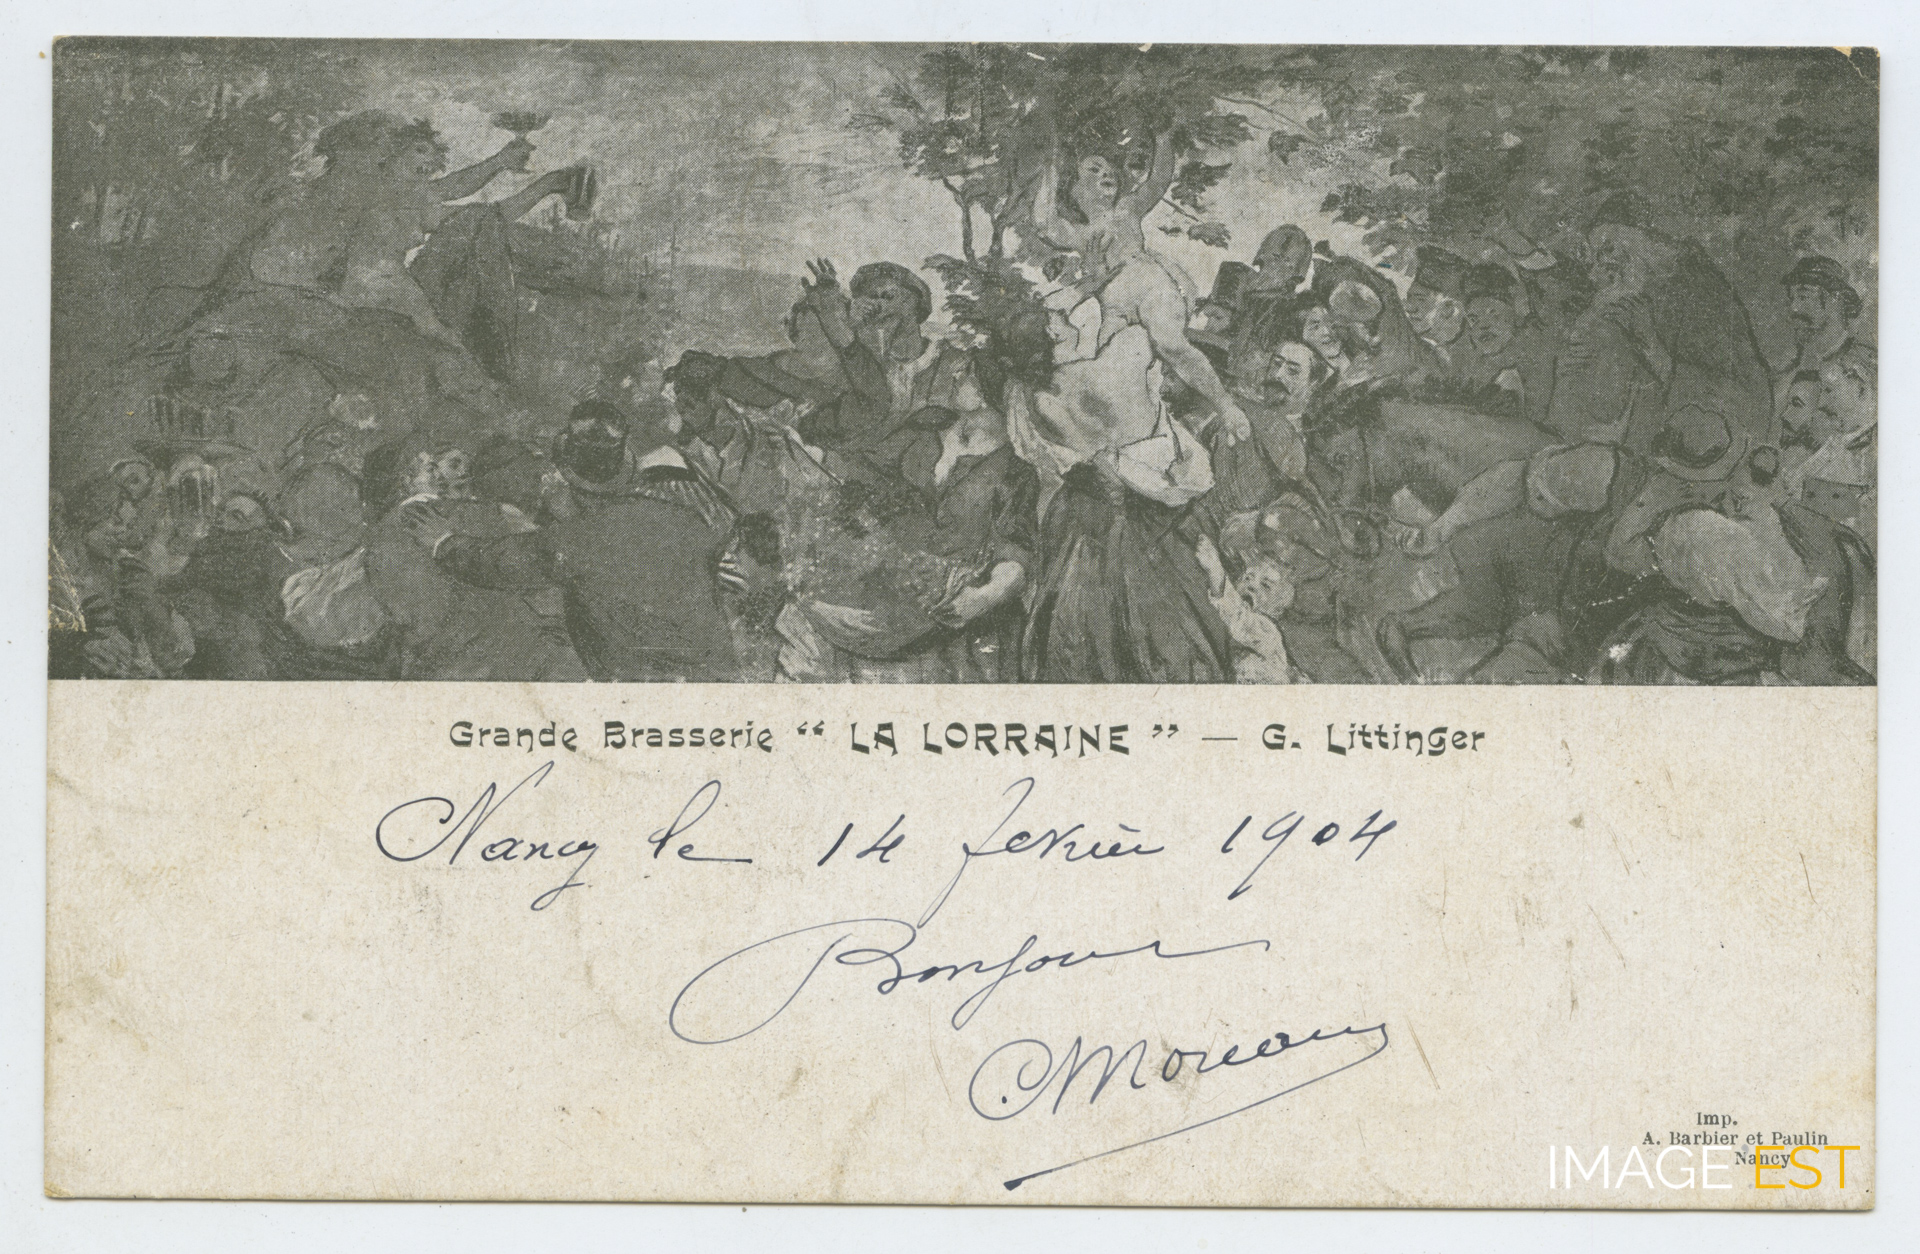 Grande Brasserie “ LA LORRAINE ” — G. Littinger
Nancy le 14 fevrier 1904
Bonjour
Moreau
Imp.
A. Barbier et Paulin
Nancy
IMAGE EST